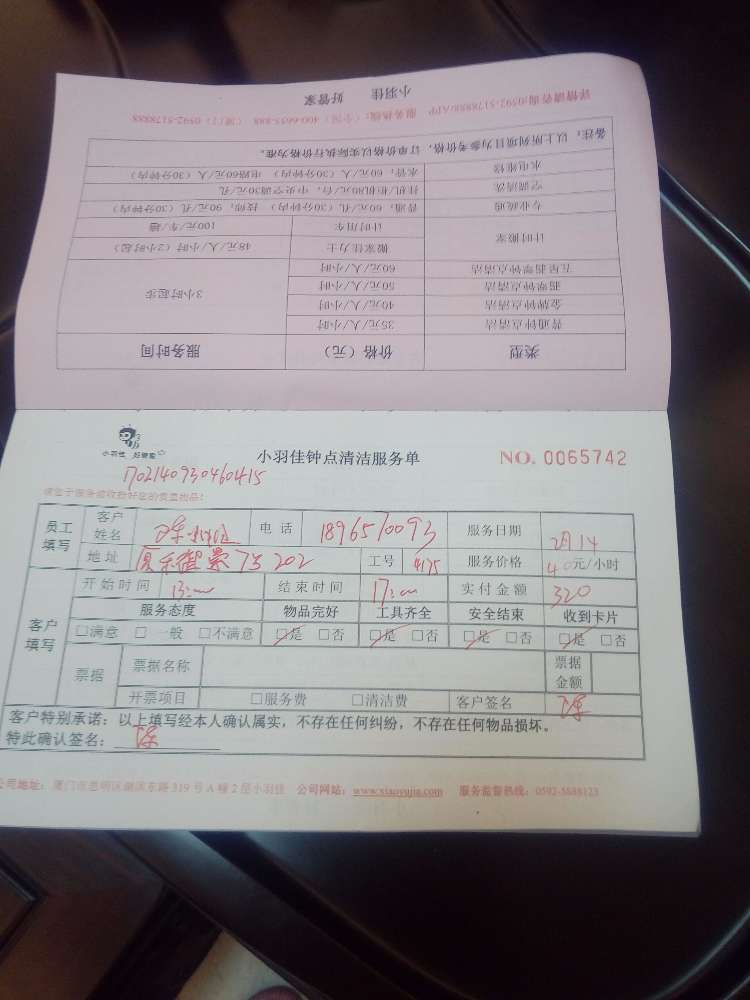 详情请咨询:0592-5178888/APP 服务热线:(全国)400-6655-888 (厦门)0592-5178888
小羽佳 好管家
类型 价格(元) 服务时间
普通钟点清洁 35元/人/小时 3小时起步
金牌钟点清洁 40元/人/小时
指挥钟点清洁 50元/人/小时
五星指挥钟点清洁 60元/人/小时
计时搬家 搬家佳力士 48元/人/小时(2小时起)
计时用车 100元/车/趟
专业疏通 普通,60元/孔(30分钟内) 技师,90元/孔(30分钟内)
空调清洗 挂机/柜机80元/台,中央空调30元/孔
水电维修 水管,60元/人(30分钟内) 电路60元/人(30分钟内)
备注:以上所列项目为参考价格,订单价格以实际执行价格为准。
小羽佳 好管家
小羽佳钟点清洁服务单
NO. 0065742
1702140930460415
请您于服务前收拾好您的贵重物品!
员工填写 客户姓名 陈 电话 1896570093 服务日期 2月14
地址 7号202 工号 4175 服务价格 40元/小时
客户填写 开始时间 13:00 结束时间 17:00 实付金额 320
服务态度 物品完好 工具齐全 安全结束 收到卡片
□满意 □一般 □不满意 □是 □否 □是 □否 □是 □否 □是 □否
票据 票据名称 票据金额
开票项目 □服务费 □清洁费 客户签名 陈
客户特别承诺:以上填写经本人确认属实,不存在任何纠纷,不存在任何物品损坏。
特此确认签名: 陈
公司地址:厦门市思明区湖滨东路319号A幢2层小羽佳 公司网站:www.xiaoyujia.com 服务监督热线:0592-5688123